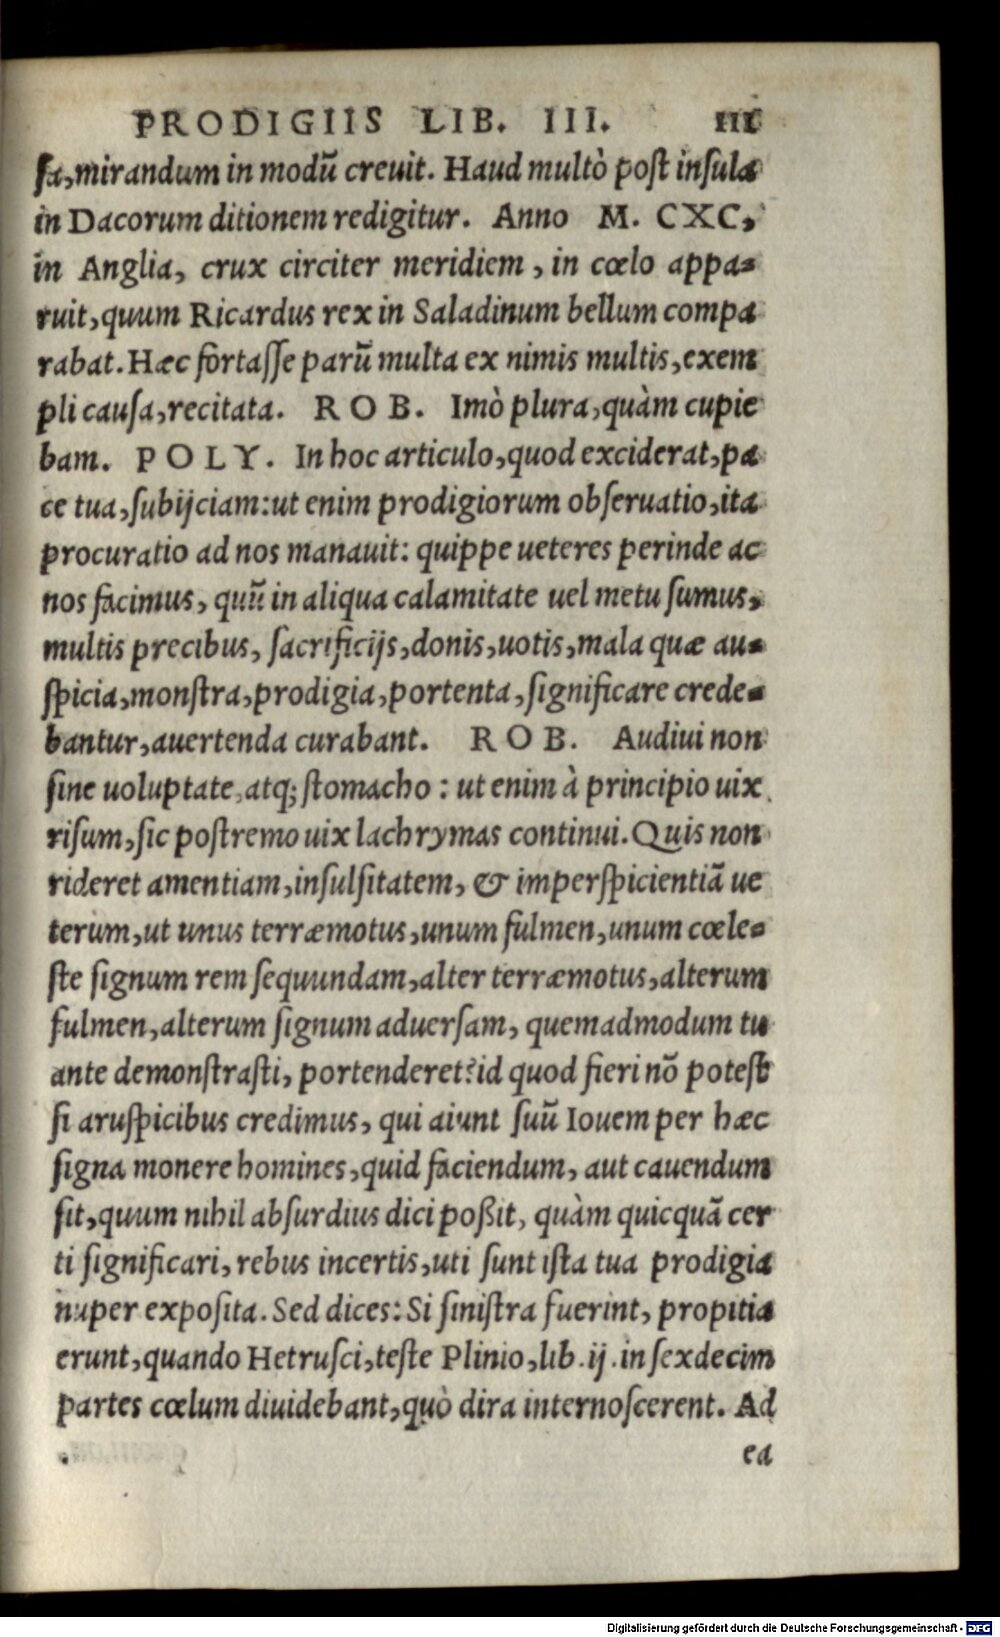 PRODIGIIS LIB. III. III
ſa,mirandum in modũ creuit. Haud multò poſt inſula
in Dacorum ditionem redigitur. Anno M. CXC,
in Anglia, crux circiter meridiem, in cœlo appa-
ruit,quum Ricardus rex in Saladinum bellum compa
rabat. Hæc fortaſſe parũ multa ex nimis multis,exem
pli cauſa,recitata. ROB. Imò plura,quàm cupie
bam. POLY. In hoc articulo,quod exciderat,pa
ce tua,ſubijciam:ut enim prodigiorum obſeruatio,ita
procuratio ad nos manauit: quippe ueteres perinde ac
nos facimus, quũ in aliqua calamitate uel metu ſumus,
multis precibus, ſacrificijs,donis,uotis,mala quæ au-
ſpicia,monſtra,prodigia,portenta,ſignificare crede-
bantur,auertenda curabant. ROB. Audiui non
ſine uoluptate,atq; ſtomacho : ut enim à principio uix
riſum,ſic poſtremo uix lachrymas continui. Quis non
rideret amentiam,inſulſitatem, & imperſpicientiã ue
terum,ut unus terræmotus,unum fulmen,unum cœle-
ſte ſignum rem ſequundam,alter terræmotus,alterum
fulmen,alterum ſignum aduerſam, quemadmodum tu
ante demonſtraſti, portenderet?id quod fieri nõ poteſt
ſi aruſpicibus credimus, qui aiunt ſuũ Iouem per hæc
ſigna monere homines,quid faciendum, aut cauendum
ſit,quum nihil abſurdius dici poßit, quàm quicquã cer
ti ſignificari, rebus incertis,uti ſunt iſta tua prodigia
nuper expoſita. Sed dices: Si ſiniſtra fuerint, propitia
erunt,quando Hetruſci,teſte Plinio,lib.ij.in ſexdecim
partes cœlum diuidebant,quò dira internoſcerent. Ad
ea
Digitalisierung gefördert durch die Deutsche Forschungsgemeinschaft - DFG